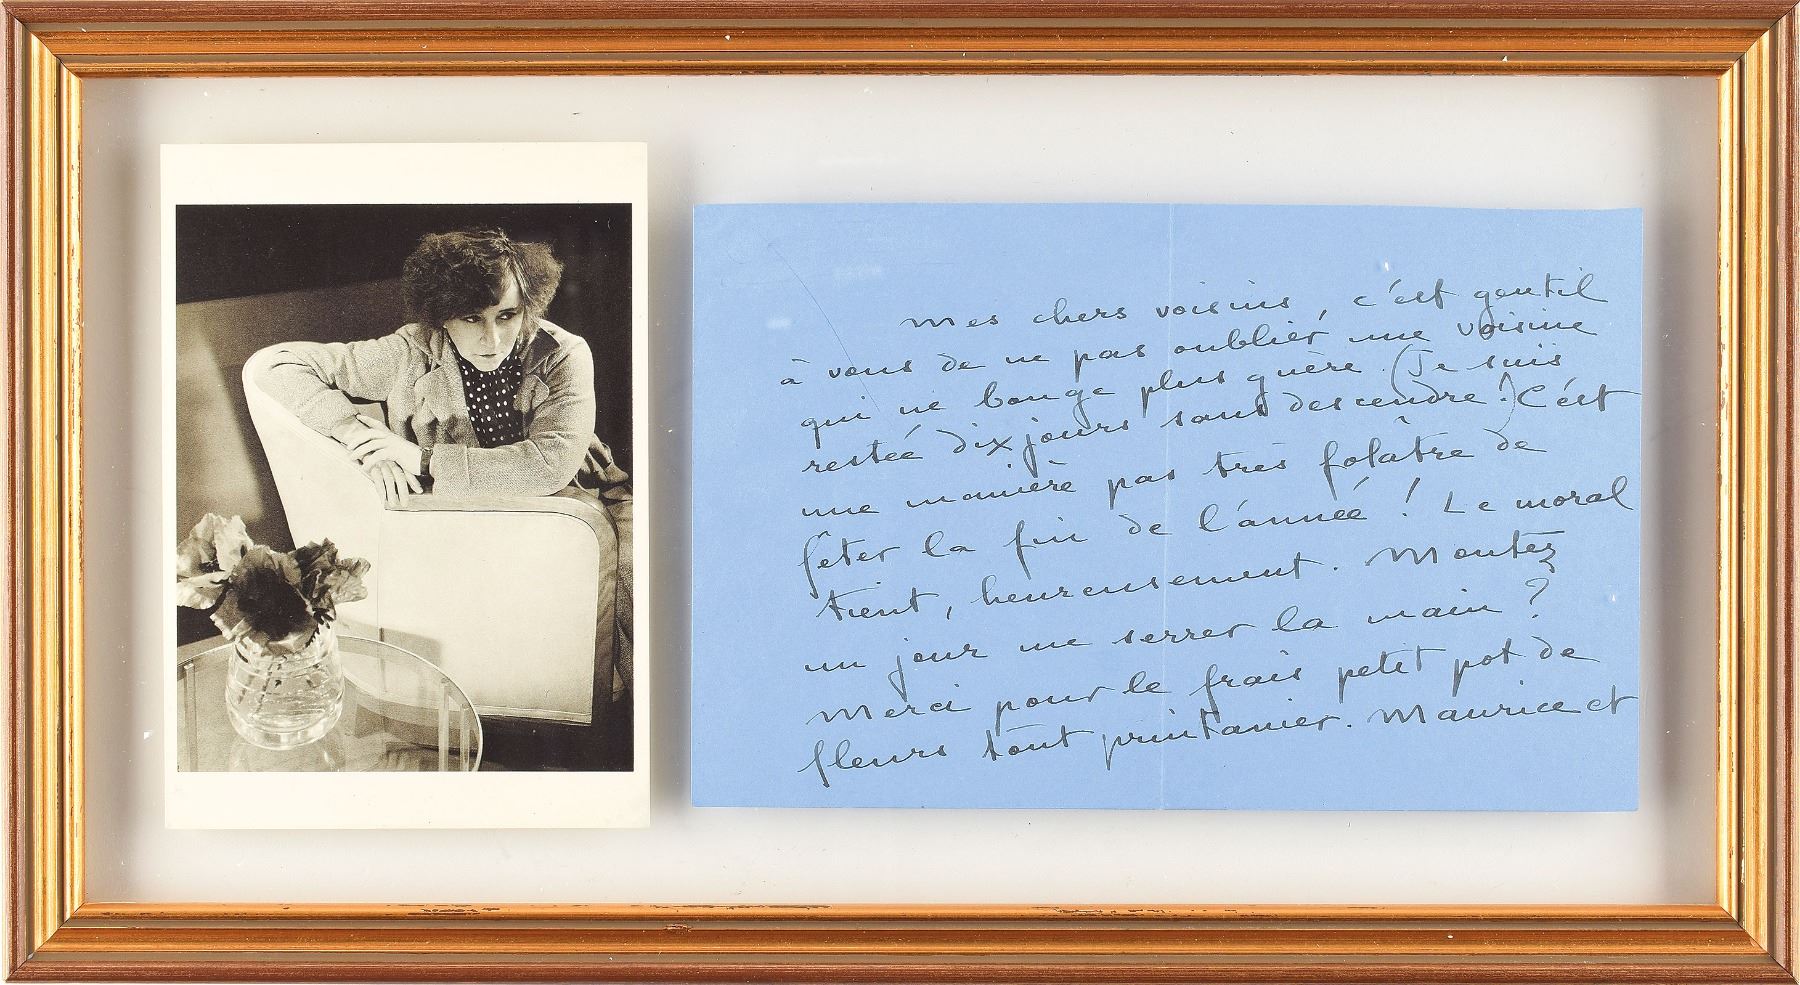 Mes chers voisins, c'est gentil
à vous de ne pas oublier une voisine
qui ne bouge plus guère. (Je suis
restée dix jours sans descendre!) C'est
une manière pas très folâtre de
fêter la fin de l'année! Le moral
tient, heureusement. Montez
un jour me serrer la main?
Merci pour le frais petit pot de
fleurs tout printanier. Maurice et